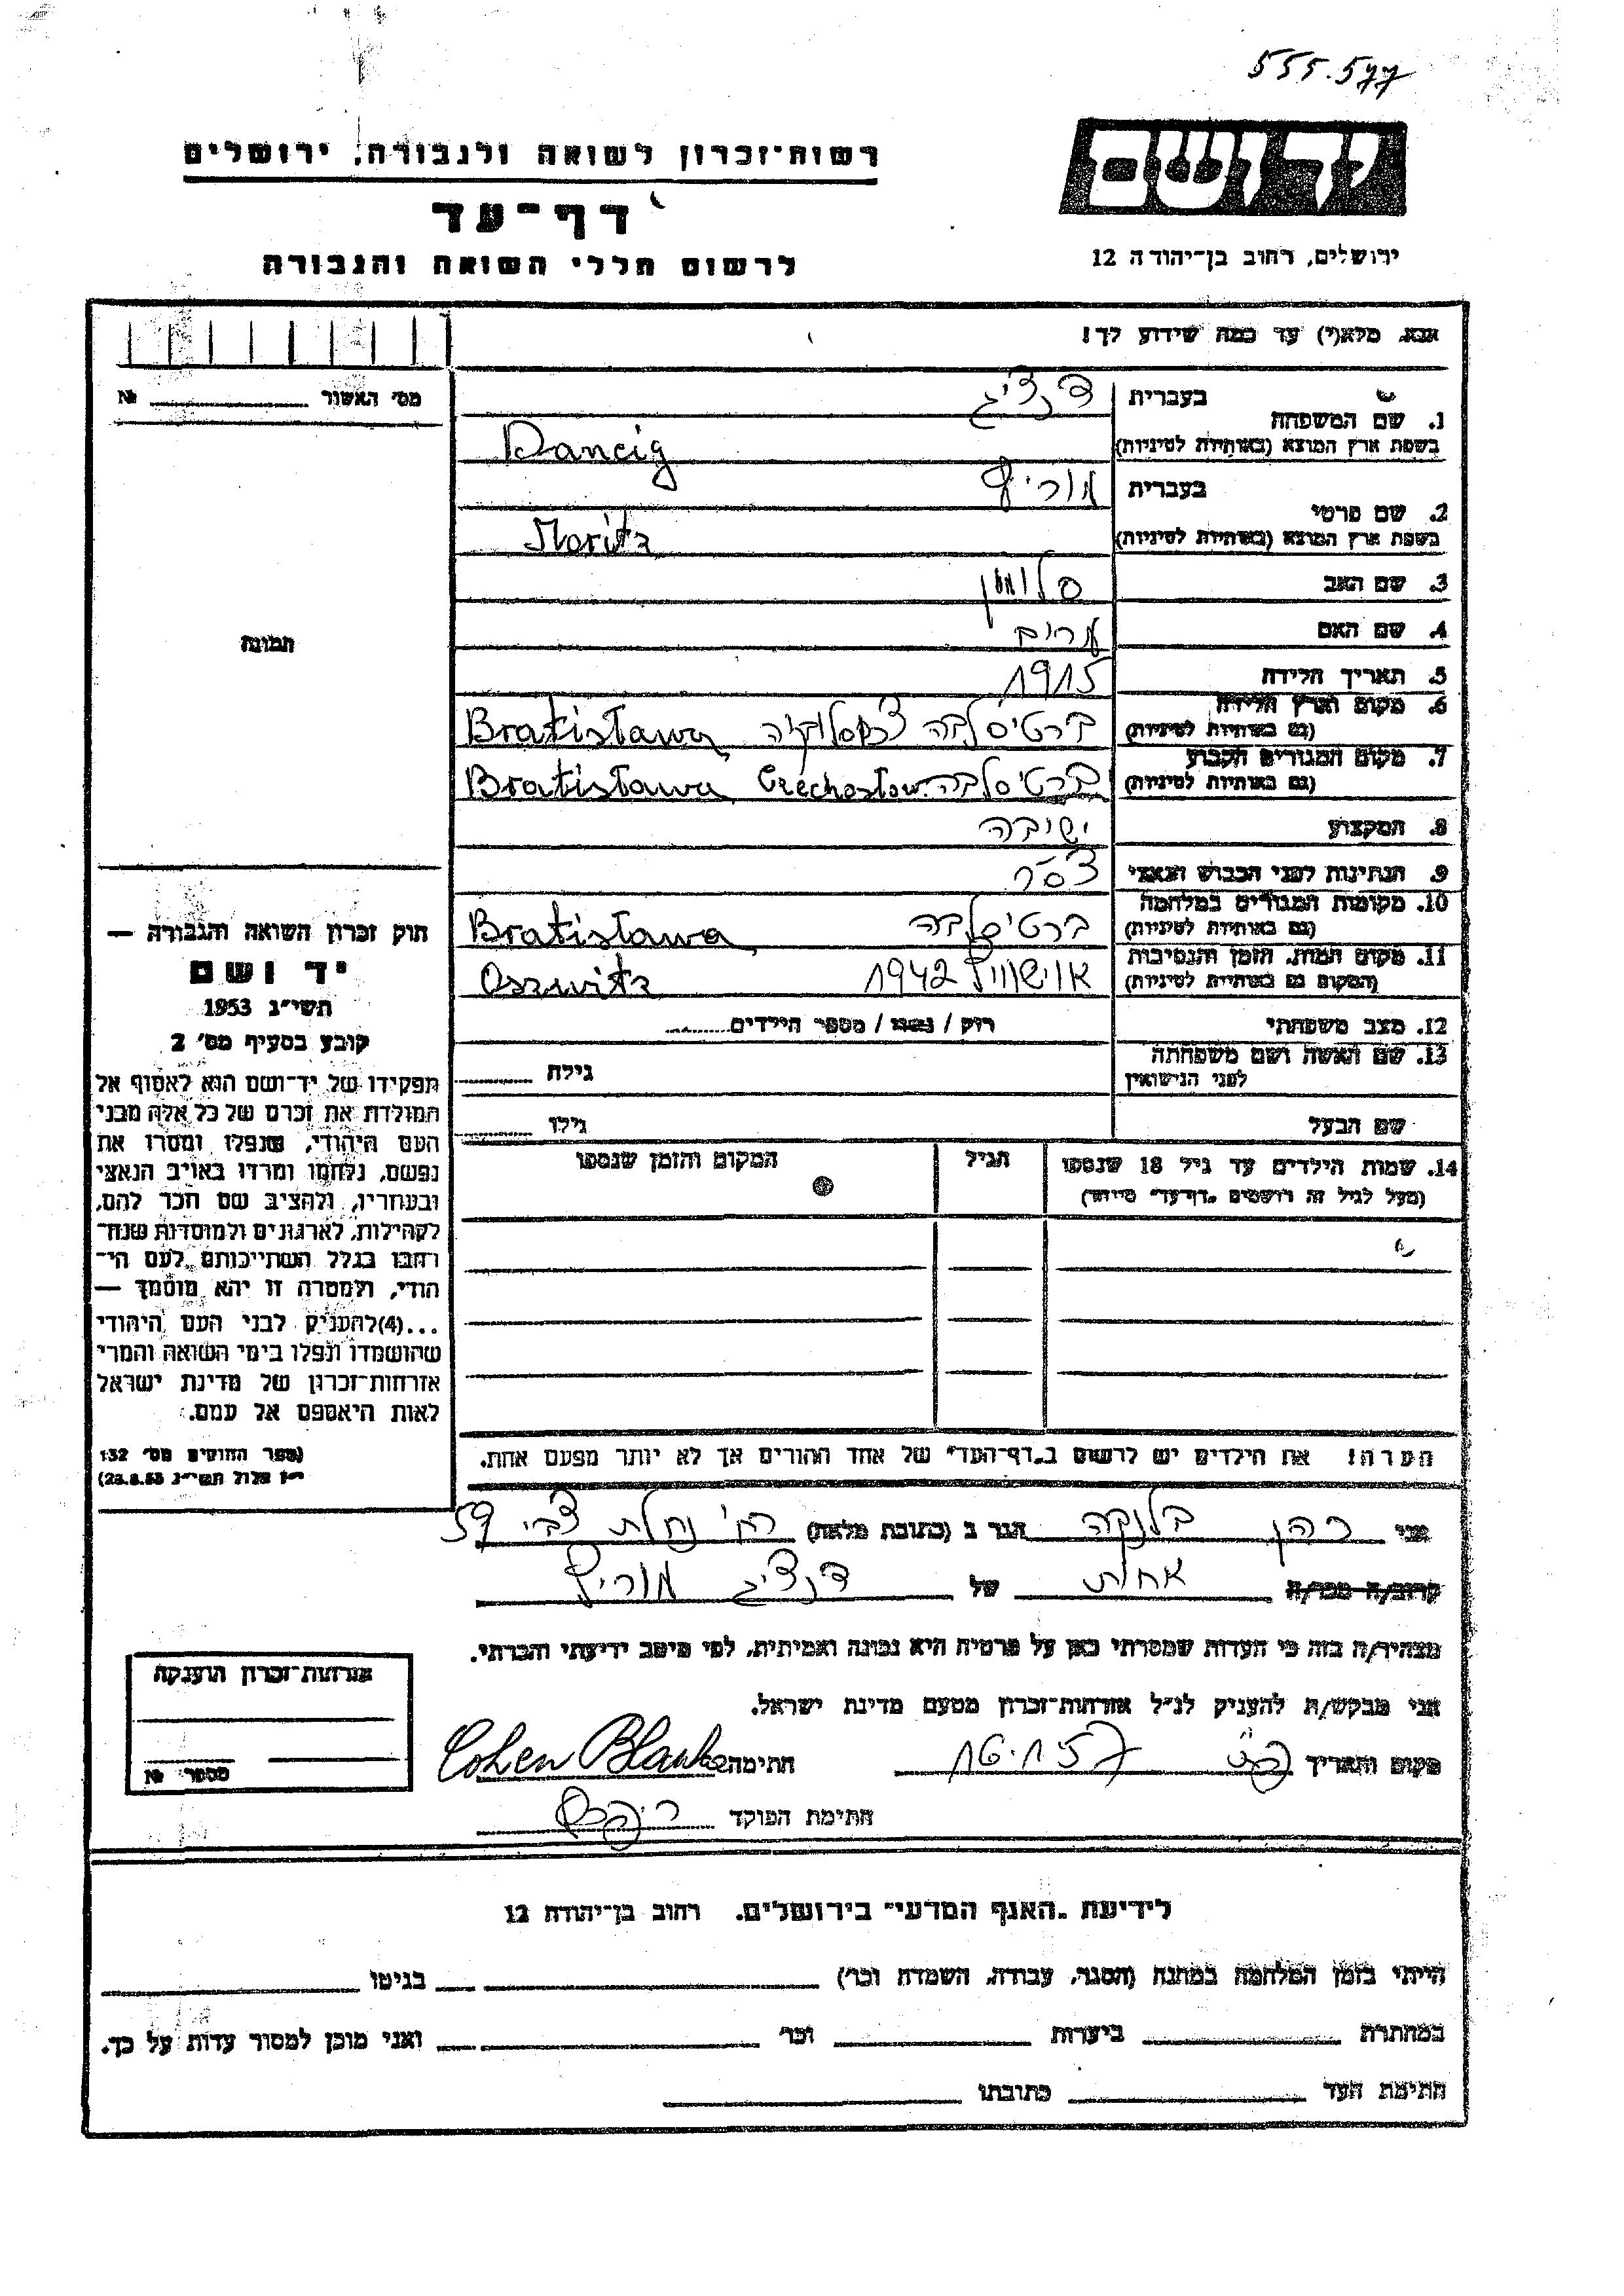 555.577
יד ושם
ירושלים, רחוב בן־יהודה 12
רשות־זכרון לשואה ולגבורה, ירושלים
דף־עד
לרשום חללי השואה והגבורה
אנא, מלא(י) עד כמה שידוע לך!
מס׳ האשור № ________
תמונה
1. שם המשפחה בעברית דנציג
בשפת ארץ המוצא (באותיות לטיניות) Dancig
2. שם פרטי בעברית מוריץ
בשפת ארץ המוצא (באותיות לטיניות) Moritz
3. שם האב סלומון
4. שם האם מרים
5. תאריך הלידה 1915
6. מקום וארץ הלידה (גם באותיות לטיניות) ברטיסלבה צ'כסלובקיה Bratislawa
7. מקום המגורים הקבוע (גם באותיות לטיניות) ברטיסלבה Bratislawa Czechoslow.
8. המקצוע ישיבה
9. הנתינות לפני הכבוש הנאצי צ'ס"ר
10. מקומות המגורים במלחמה (גם באותיות לטיניות) ברטיסלבה Bratislawa
11. מקום המות, הזמן והנסיבות (המקום גם באותיות לטיניות) אוישוויץ 1942 Oszwitz
12. מצב משפחתי רוק / נשוי / מספר הילדים........
13. שם האשה ושם משפחתה לפני הנישואין גילה ........
שם הבעל גילו ........
14. שמות הילדים עד גיל 18 שנספו הגיל המקום והזמן שנספו
(מעל לגיל זה רושמים „דף־עד״ מיוחד)
הערה! את הילדים יש לרשום ב„דף־העד״ של אחד ההורים אך לא יותר מפעם אחת.
חוק זכרון השואה והגבורה —
יד ושם
תשי״ג 1953
קובע בסעיף מס׳ 2
תפקידו של יד־ושם הוא לאסוף אל
המולדת את זכרם של כל אלה מבני
העם היהודי, שנפלו ומסרו את
נפשם, נלחמו ומרדו באויב הנאצי
ובעוזריו, ולהציב שם וזכר להם,
לקהילות, לארגונים ולמוסדות שנח־
רבו בגלל השתייכותם לעם הי־
הודי, ולמטרה זו יהא מוסמך —
...(4)להעניק לבני העם היהודי
שהושמדו ונפלו בימי השואה והמרי
אזרחות־זכרון של מדינת ישראל
לאות היאספם אל עמם.
(ספר החוקים מס׳ 132
י״ז אלול תשי״ג 28.8.53)
אני כהן בלנקה הגר ב (כתובת מלאה) רח' נחלת צבי 59
קרוב/ה מכר/ה אחות של דנציג מוריץ
מצהיר/ה בזה כי העדות שמסרתי כאן על פרטיה היא נכונה ואמיתית, לפי מיטב ידיעתי והכרתי.
אני מבקש/ת להעניק לנ״ל אזרחות־זכרון מטעם מדינת ישראל.
מקום ותאריך 16.1.57 חתימה Cohen Blanka
חתימת הפוקד
אזרחות־זכרון הוענקה
מספר №
לידיעת „האגף המדעי״ בירושלים. רחוב בן־יהודה 12
הייתי בזמן המלחמה במחנה (הסגר, עבודה, השמדה וכר׳) ________ בגיטו ________
במחתרת ________ ביערות ________ וכר׳ ________ ואני מוכן למסור עדות על כך.
חתימת העד ________ כתובתו ________